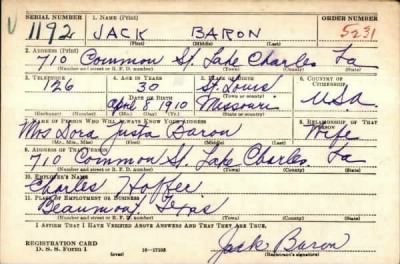 SERIAL NUMBER 1. NAME (Print) ORDER NUMBER
1192 JACK BARON 5231
(First) (Middle) (Last)
2. ADDRESS (Print)
710 Common St. Lake Charles La
(Number and street or R. F. D. number) (Town) (County) (State)
3. TELEPHONE 4. AGE IN YEARS 5. PLACE OF BIRTH 6. COUNTRY OF CITIZENSHIP
126 30 St. Louis
DATE OF BIRTH (Town or county)
April 8 1910 Missouri USA
(Exchange) (Number) (Mo.) (Day) (Yr.) (State or country)
7. NAME OF PERSON WHO WILL ALWAYS KNOW YOUR ADDRESS 8. RELATIONSHIP OF THAT PERSON
Mrs Dora Baron Wife
(Mr., Mrs., Miss) (First) (Middle) (Last)
9. ADDRESS OF THAT PERSON
710 Common St. Lake Charles La
(Number and street or R. F. D. number) (Town) (County) (State)
10. EMPLOYER'S NAME
Charles Hoffer
11. PLACE OF EMPLOYMENT OR BUSINESS
Beaumont, Texas
(Number and street or R. F. D. number) (Town) (County) (State)
I AFFIRM THAT I HAVE VERIFIED ABOVE ANSWERS AND THAT THEY ARE TRUE.
REGISTRATION CARD
D. S. S. Form 1 16—17105 Jack Baron
(Registrant's signature)